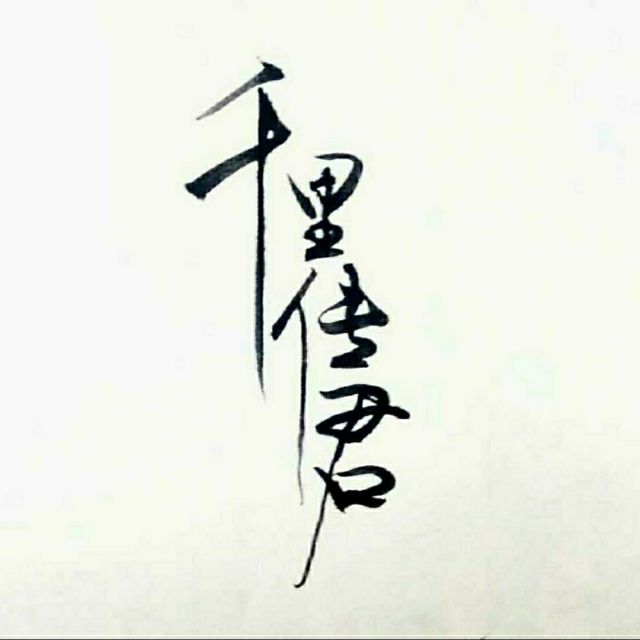 千里佳君